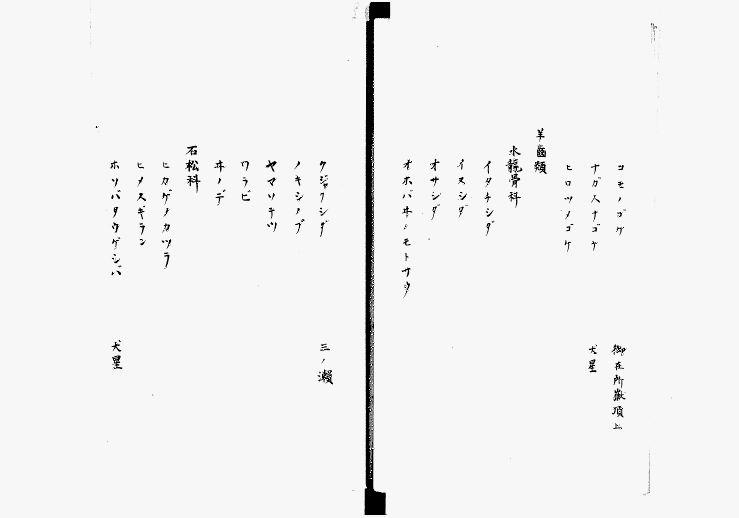 コモノゴケ 御在所嶽頂上
ナガハナゴケ 犬星
ヒロツノゴケ
羊齒類
水龍骨科
イタチシダ
イヌシダ
オサシダ
オホバヰノモトサウ
クジャクシダ 三ノ瀬
ノキシノブ
ヤマソテツ
ワラビ
ヰノデ
石松科
ヒカゲノカツラ
ヒメスギラン
ホソバタウゲシバ 犬星